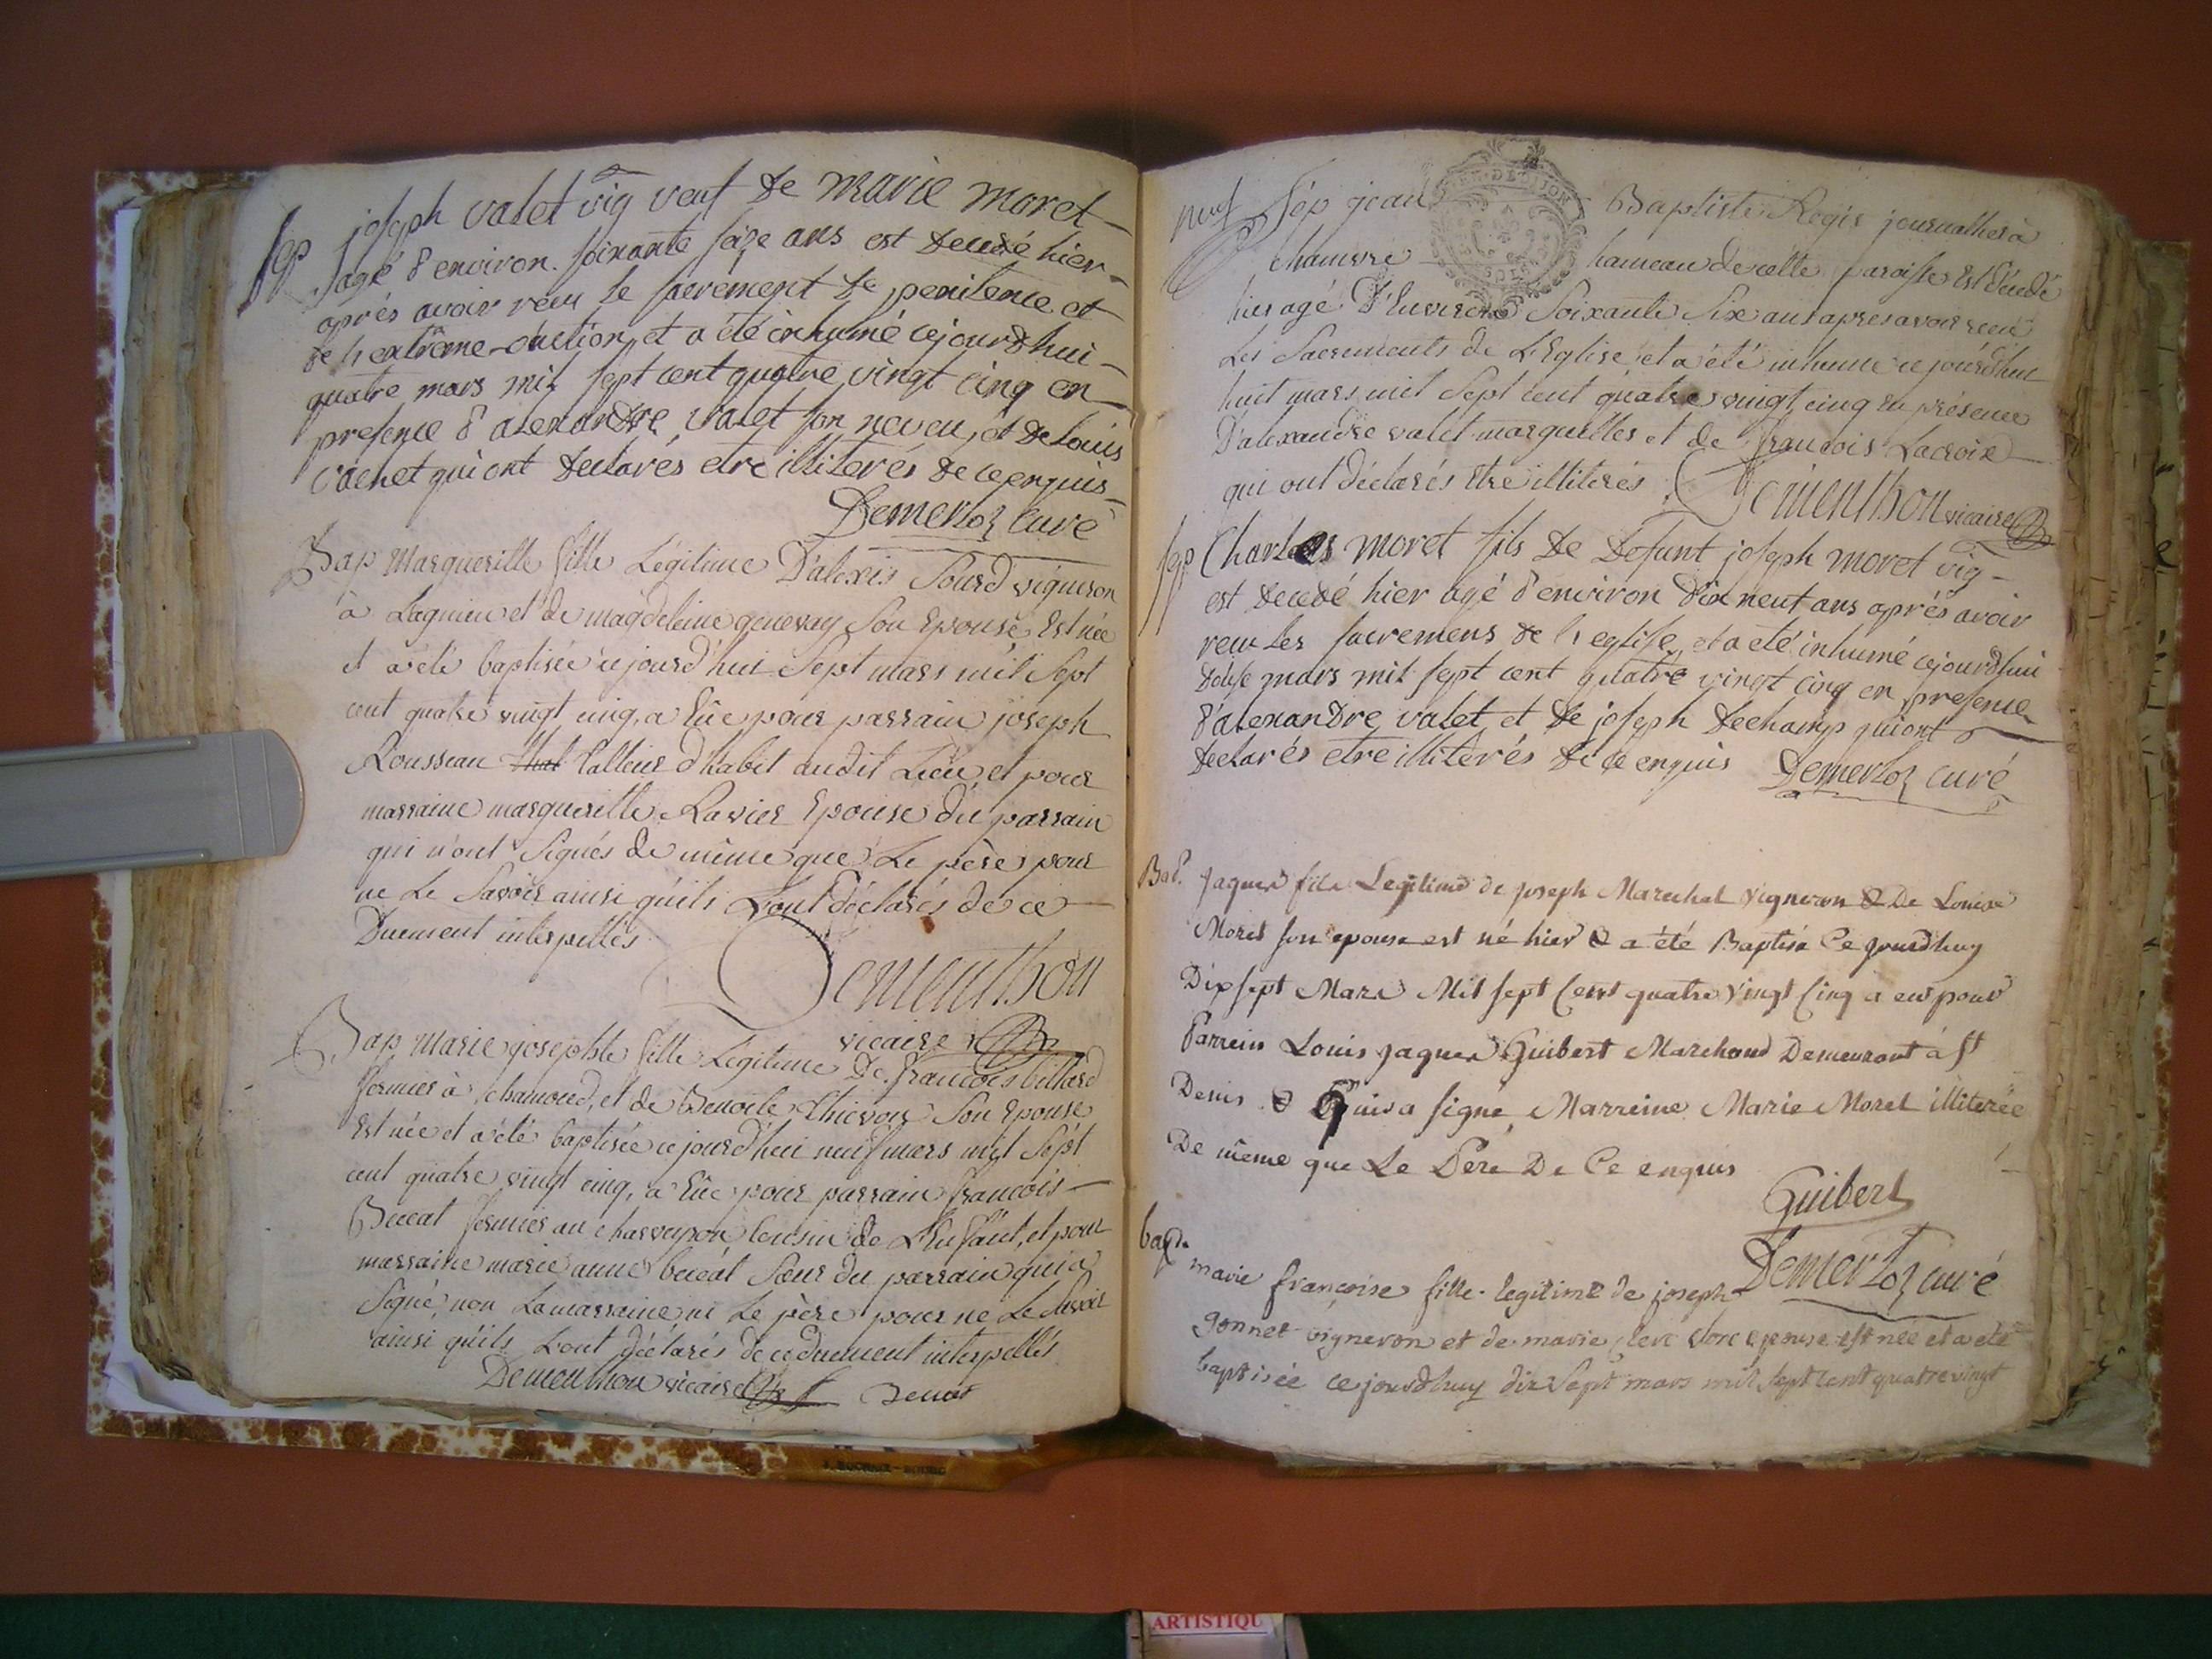 Sep joseph valet vig veuf de marie moret
agé d'environ soixante seize ans est decedé hier
aprés avoir recu le sacrement de penitence et
de l'extrême-onction, et a été inhumé cejourdhui
quatre mars mil sept cent quatre vingt cinq en
presence d'alexandre valet son neveu, et de louis
vachet qui ont declarés etre illiterés de ce enquis
Demerloz curé
Bap Marguerille fille Légitime D'alexis Sourd vigneron
à Lagnieu et de magdeleine genevay Son Epouse Est née
et a été baptisée cejourd'hui Sept mars mil Sept
cent quatre vingt cinq, a Eüe pour parrain joseph
Rousseau tailleur d'habit audit Lieu et pour
marraine marguerille Ravier Epouse du parrain
qui n'ont Signés de même que Le père pour
ne Le Savoir ainsi qu'ils L'ont déclarés de ce
Duement interpellés
Dementhon
vicaire
Bap Marie josephte fille Légitime De francois billard
fermier à chamoud, et de Benoite Thievon Son Epouse
Est née et a été baptisée cejourd'hui neuf mars mil Sept
cent quatre vingt cinq, a Eüe pour parrain francois
Buccat fermier au charveyron Cousin de L'Enfant, et pour
marraine marie anne Buccat Sœur du parrain qui a
Signé, non La marraine ni Le père pour ne Le Savoir
ainsi qu'ils L'ont déclarés de ce duement interpellés
Dementhon vicaire
neuf Sép jean Baptiste Regis journallier à
hameau de cette paroisse Est décedé
hier agé D'Environ Soixante Six ans apres avoir recu
Les Sacrements de L'Eglise et a été inhumé cejourd'hui
huit mars mil Sept cent quatre vingt cinq en présence
D'alexandre valet marguillier et de francois Lacroix
qui ont déclarés Etre illiterés Dementhon vicaire
sep Charles moret fils de Defunt joseph moret vig
est decedé hier agé d'environ dix neuf ans aprés avoir
recu les sacremens de l'eglise, et a été inhumé cejourdhui
douse mars mil sept cent quatre vingt cinq en presence
d'alexandre valet et de joseph dechamp qui ont
declarés etre illiterés de ce enquis Demerloz curé
Bap. Jaques fils Legitime de joseph Marechal vigneron & De Louise
Moret son epouse est né hier & a été Baptisé Ce jourdhuy
Dix sept Mars Mil sept Cent quatre vingt Cinq a eu pour
Parrein Louis Jaques Guibert Marchand Demeurant à St
Denis & Qui a signé, Marreine Marie Moret illiterée
De même que Le Père De Ce enquis
Guibert
Demerloz curé
bapt. marie françoise fille legitime de joseph
gonnet vigneron et de marie clerc son epouse est née et a été
baptisée ce jourdhuy dix Sept mars mil sept cent quatre vingt
ARTISTIQU